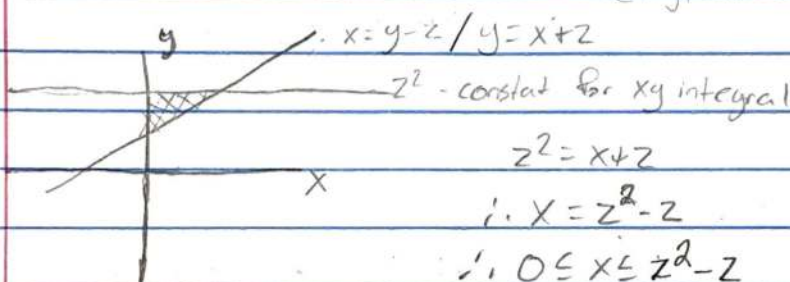 y
x=y-z / y=x+z
z² - constat for xy integral
x
z² = x+z
∴ x = z²-z
∴ 0 ≤ x ≤ z²-z